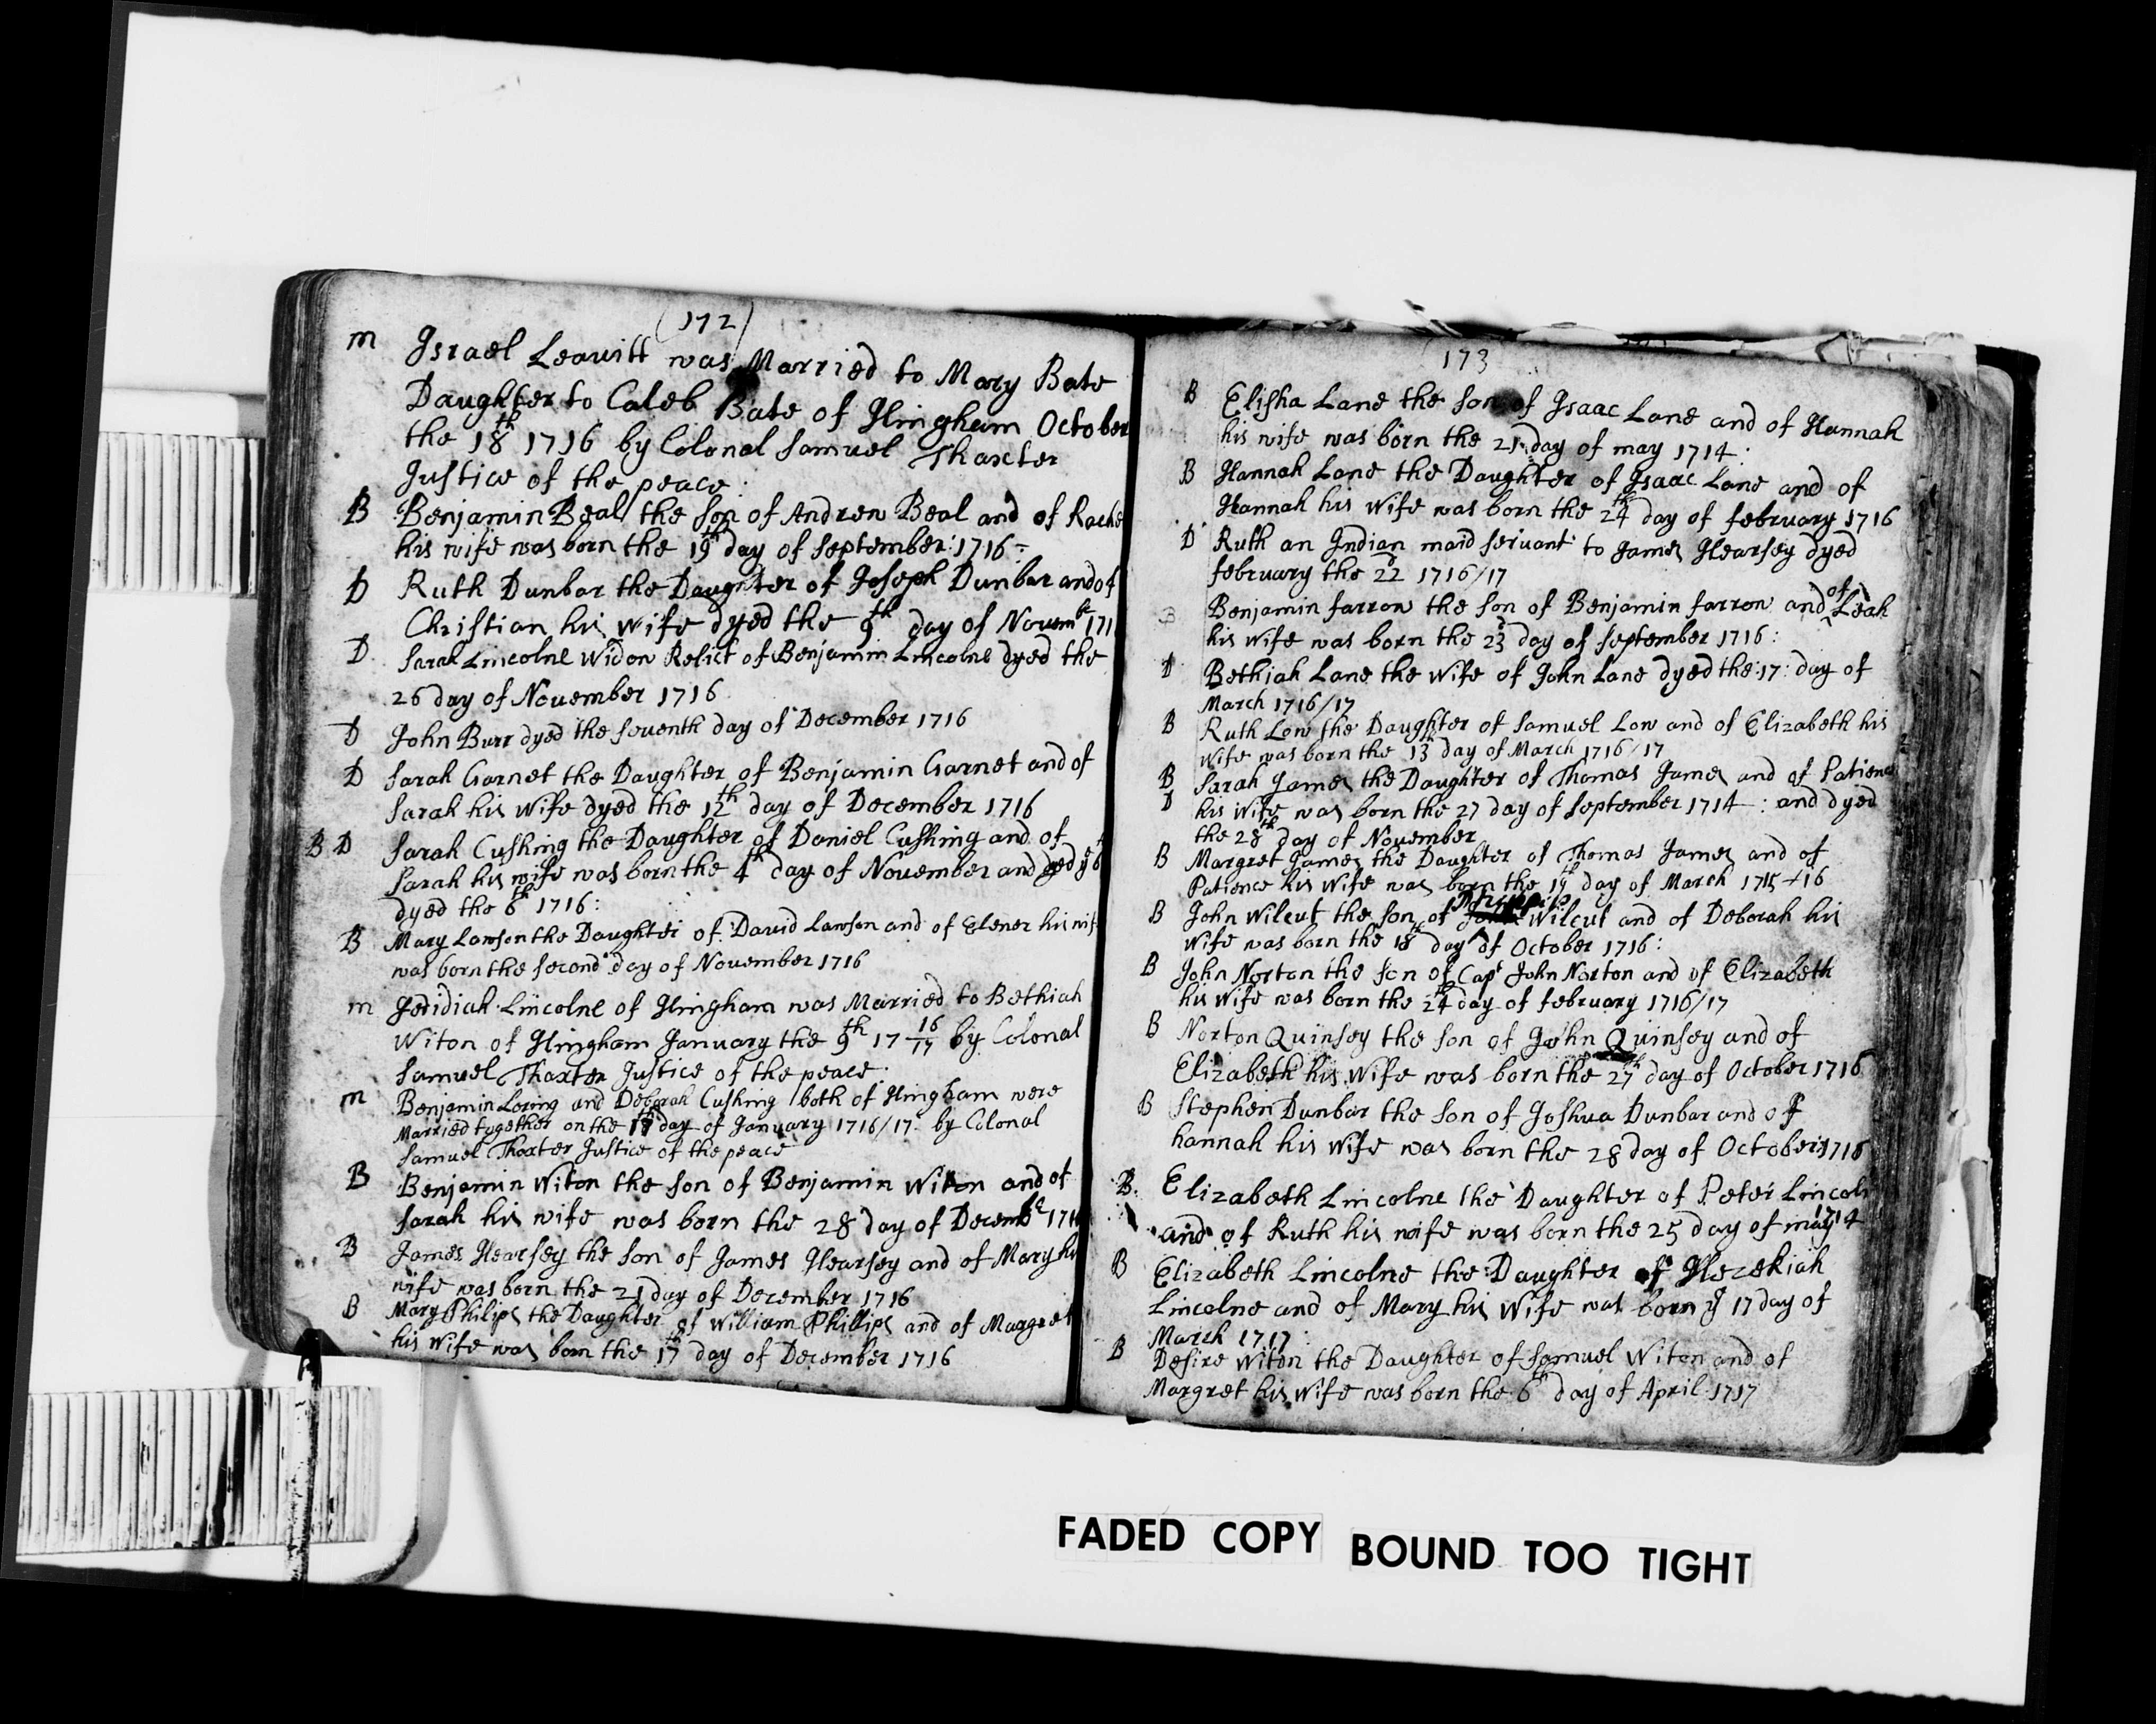 (172)
m Israel Leavitt was Married to Mary Bate
Daughter to Caleb Bate of Hingham October
the 18th 1716 by Colonal Samuel Thaxter
Justice of the peace:
B Benjamin Beal the son of Andrew Beal and of Rache
his wife was born the 19th day of September: 1716:
D Ruth Dunbar the Daughter of Joseph Dunbar and of
Christian his wife dyed the 9th day of Novembr 171
D Sarah Lincolne Widow Relict of Benjamin Lincolne dyed the
26 day of November 1716
D John Burr dyed the seventh day of December 1716
D Sarah Garnet the Daughter of Benjamin Garnet and of
Sarah his wife dyed the 12th day of December 1716
B D Sarah Cushing the Daughter of Daniel Cushing and of
Sarah his wife was born the 4th day of November and dyed ye 6
dyed the 6th 1716:
B Mary Lawson the Daughter of David Lawson and of Elener his wif
was born the second day of November 1716
m Jedidiah Lincolne of Hingham was Married to Bethiah
Witon of Hingham January the 9th 17 16/17 by Colonal
Samuel Thaxter Justice of the peace:
m Benjamin Loring and Deborah Cushing both of Hingham were
Married together on the day of January 1716/17 by Colonal
Samuel Thaxter Justice of the peace
B Benjamin Witon the son of Benjamin Witon and of
Sarah his wife was born the 28 day of Decembr 1716
B James Hearsey the son of James Hearsey and of Mary his
wife was born the 21 day of December 1716
B Mary Philips the Daughter of William Phillips and of Margret
his Wife was born the 17th day of December 1716
173
B Elisha Lane the son of Isaac Lane and of Hannah
his wife was born the 21 day of may 1714:
B Hannah Lane the Daughter of Isaac Lane and of
Hannah his Wife was born the 24th day of february 1716
D Ruth an Indian maid servant to James Hearsey dyed
february the 22d 1716/17
B Benjamin farrow the son of Benjamin farrow and of Leah
his Wife was born the 23d day of September 1716:
D Bethiah Lane the Wife of John Lane dyed the 17: day of
March 1716/17
B Ruth Low the Daughter of Samuel Low and of Elizabeth his
Wife was born the 13th day of March 1716/17
B Sarah James the Daughter of Thomas James and of Patience
D his Wife was born the 27 day of September 1714: and dyed
the 28th day of November
B Margret James the Daughter of Thomas James and of
Patience his Wife was born the 19th day of March 1715/16
B John Wilcut the son of Wilcut and of Deborah his
Wife was born the 18th day of October 1716:
B John Norton the son of Capt John Norton and of Elizabeth
his Wife was born the 24th day of february 1716/17
B Norton Quinsey the son of John Quinsey and of
Elizabeth his Wife was born the 27th day of October 1716
B Stephen Dunbar the son of Joshua Dunbar and of
hannah his Wife was born the 28 day of October 1716
B Elizabeth Lincolne the Daughter of Peter Lincoln
and of Ruth his wife was born the 25 day of may 1714
B Elizabeth Lincolne the Daughter of Hezekiah
Lincolne and of Mary his Wife was born ye 17 day of
March 1717:
B Desire Witon the Daughter of Samuel Witon and of
Margret his Wife was born the 6th day of April 1717
FADED COPY BOUND TOO TIGHT